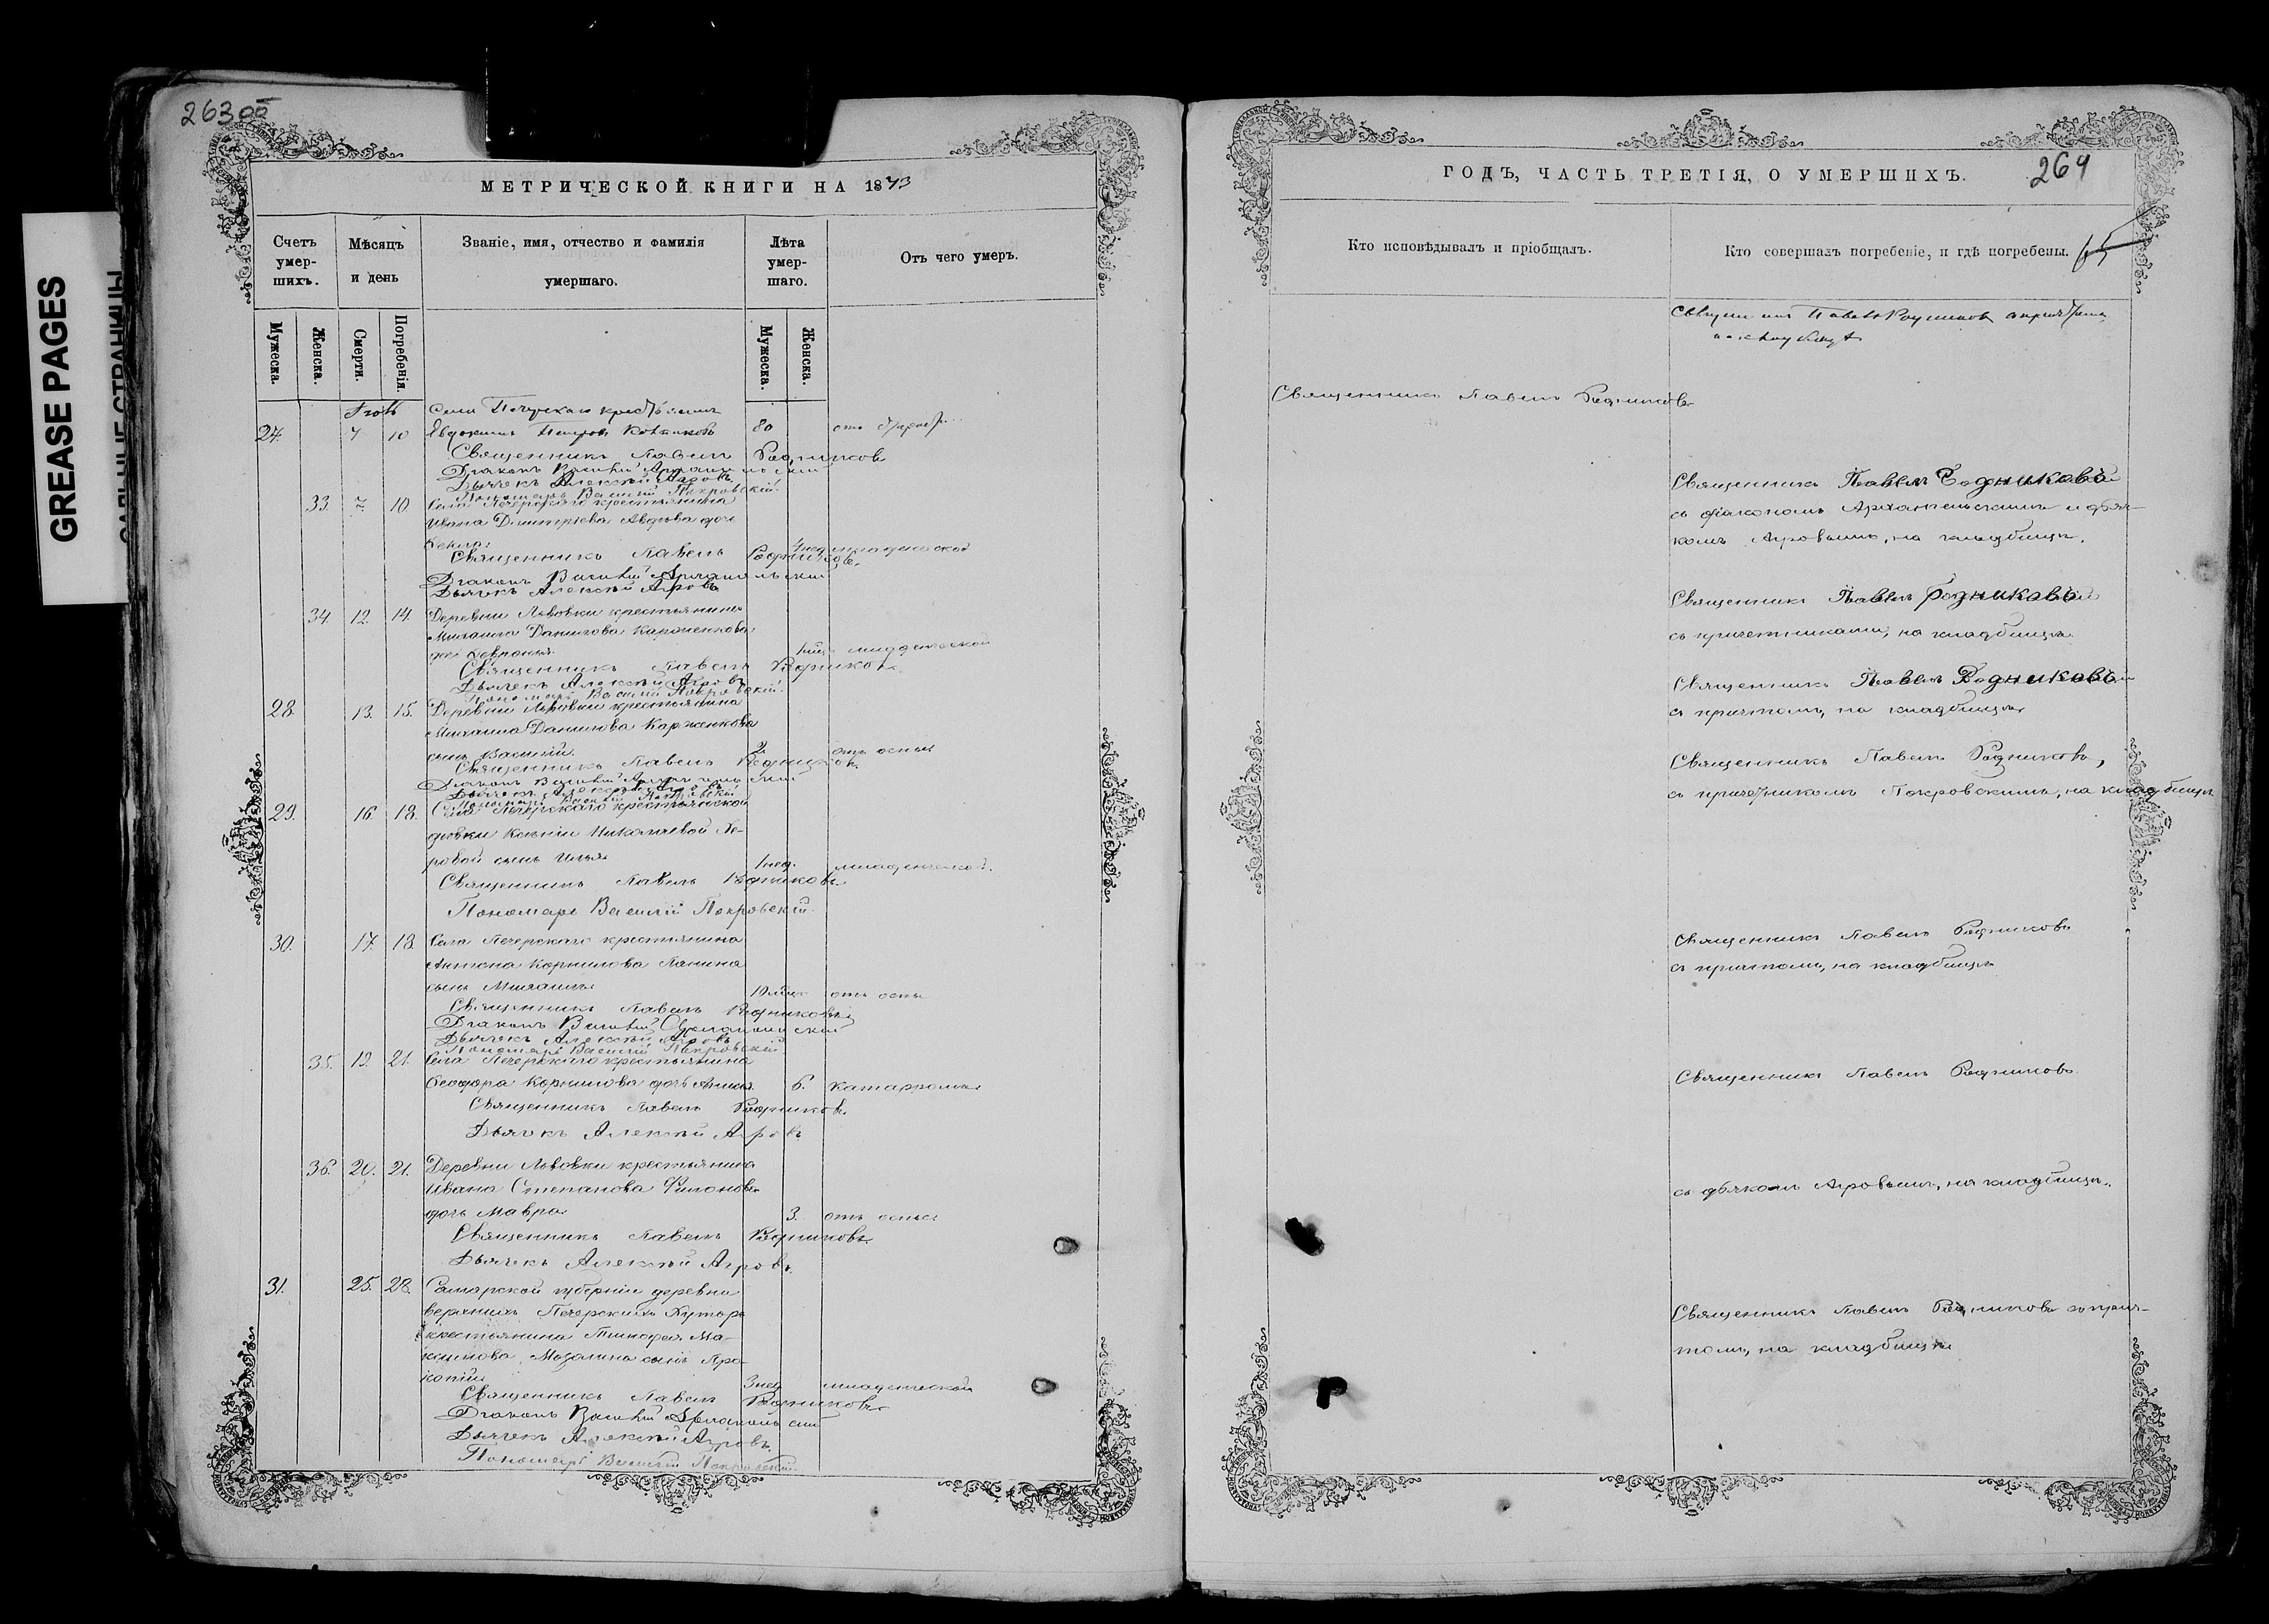 263 об
GREASE PAGES
САЛЬНЫЕ СТРАНИЦЫ
МЕТРИЧЕСКОЙ КНИГИ НА 1873
Счетъ умер-шихъ.
Мѣсяцъ и день
Званіе, имя, отчество и фамилія умершаго.
Лѣта умер-шаго.
Отъ чего умеръ.
Мужеска.
Женска.
Смерти.
Погребенія.
Мужеска.
Женска.
27. 7 10 Евдокимъ Петровъ 80
Священникъ Павелъ Родниковъ
Діаконъ Василій Архангельскій
Дьячекъ Алексѣй Агровъ
Пономарь Василій Покровскій
33. 7. 10. Села Печерскаго крестьянина
Ивана Димитріева дочь
4 нед младенческой
Священникъ Павелъ Родниковъ
Діаконъ Василій Архангельскій
Дьячекъ Алексѣй Агровъ
34 12. 14. Деревни Львовки крестьянина
Михаила Данилова Карженкова
дочь Февронья 1 мѣс. младенческой
Священникъ Павелъ Родниковъ
Дьячекъ Алексѣй Агровъ
Пономарь Василій Покровскій
28. 13. 15. Деревни Львовки крестьянина
Михаила Данилова Карженкова
сынъ Василій. 2. отъ оспы
Священникъ Павелъ Родниковъ
Діаконъ Василій Архангельскій
Дьячекъ Алексѣй Агровъ
Пономарь Василій Покровскій
29. 16. 18. Села Печерскаго крестьянской
дѣвки Ксеніи Николаевой
сынъ Илья 1 нед. младенческой.
Священникъ Павелъ Родниковъ
Пономарь Василій Покровскій
30. 17. 18. Села Печерскаго крестьянина
Антона Корнилова Панина
сынъ Михаилъ 10 мѣс. отъ оспы
Священникъ Павелъ Родниковъ
Діаконъ Василій Архангельскій
Дьячекъ Алексѣй Агровъ
Пономарь Василій Покровскій
35. 19. 21. Села Печерскаго крестьянина
Ѳеодора Корнилова дочь Анна 6.
Священникъ Павелъ Родниковъ
Дьячекъ Алексѣй Агровъ
36. 20. 21. Деревни Львовки крестьянина
Ивана Степанова Филонова
дочь Мавра 3. отъ оспы
Священникъ Павелъ Родниковъ
Дьячекъ Алексѣй Агровъ
31. 25. 28. Самарской губерніи деревни
верхнихъ Печерскихъ Хуторъ
крестьянина Тимофея Ма-
ксимова Мозалина сынъ Про-
копій 3 нед младенческой
Священникъ Павелъ Родниковъ
Діаконъ Василій Архангельскій
Дьячекъ Алексѣй Агровъ
Пономарь Василій Покровскій
ГОДЪ, ЧАСТЬ ТРЕТІЯ, О УМЕРШИХЪ.
264
65
Кто исповѣдывалъ и пріобщалъ.
Кто совершалъ погребеніе, и гдѣ погребены.
Священникъ Павелъ Родниковъ
Священникъ Павелъ Родниковъ
Священникъ Павелъ Родниковъ
съ діакономъ Архангельскимъ и дьяч-
комъ Агровымъ, на кладбищѣ.
Священникъ Павелъ Родниковъ
съ причетниками, на кладбищѣ
Священникъ Павелъ Родниковъ
съ причтомъ, на кладбищѣ
Священникъ Павелъ Родниковъ,
съ причетникомъ Покровскимъ, на кладбищѣ
Священникъ Павелъ Родниковъ
съ причтомъ, на кладбищѣ
Священникъ Павелъ Родниковъ
съ дьячкомъ Агровымъ, на кладбищѣ.
Священникъ Павелъ Родниковъ съ прич-
томъ, на кладбищѣ